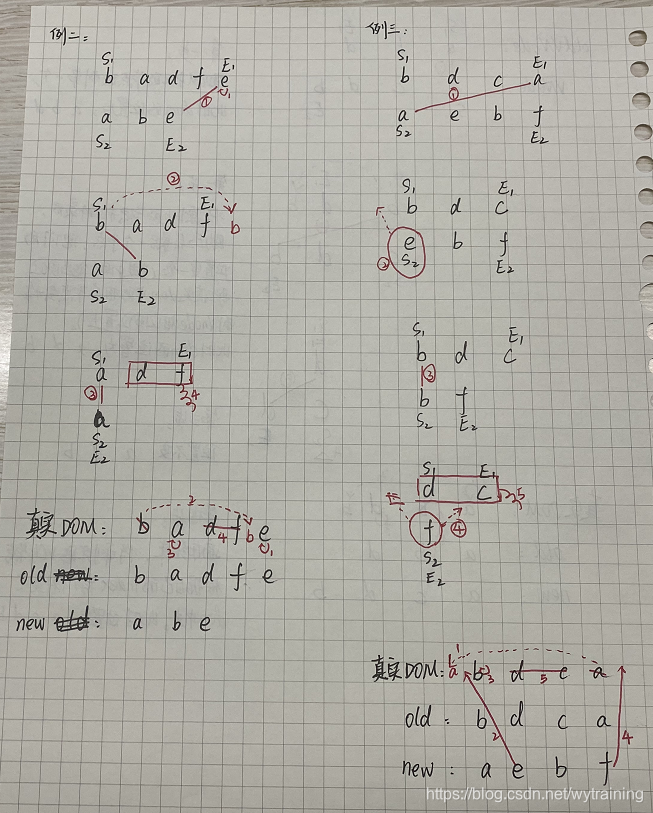 例二:
S₁ E₁
b a d f e
①
a b e
S₂ E₂
②
S₁ E₁
b a d f b
a b
S₂ E₂
S₁ E₁
a d f
③ 4
a
S₂
E₂
2
真实DOM: b a d f b e
3 4 1
old new: b a d f e
new old: a b e
例三:
S₁ E₁
b d c a
①
a e b f
S₂ E₂
S₁ E₁
b d c
e b f
② S₂ E₂
S₁ E₁
b d c
③
b f
S₂ E₂
S₁ E₁
d c 5
f ④
S₂
E₂
1
真实DOM: a b d c a
3 5
old: b d c a
2 4
new: a e b f
https://blog.csdn.net/wytraining